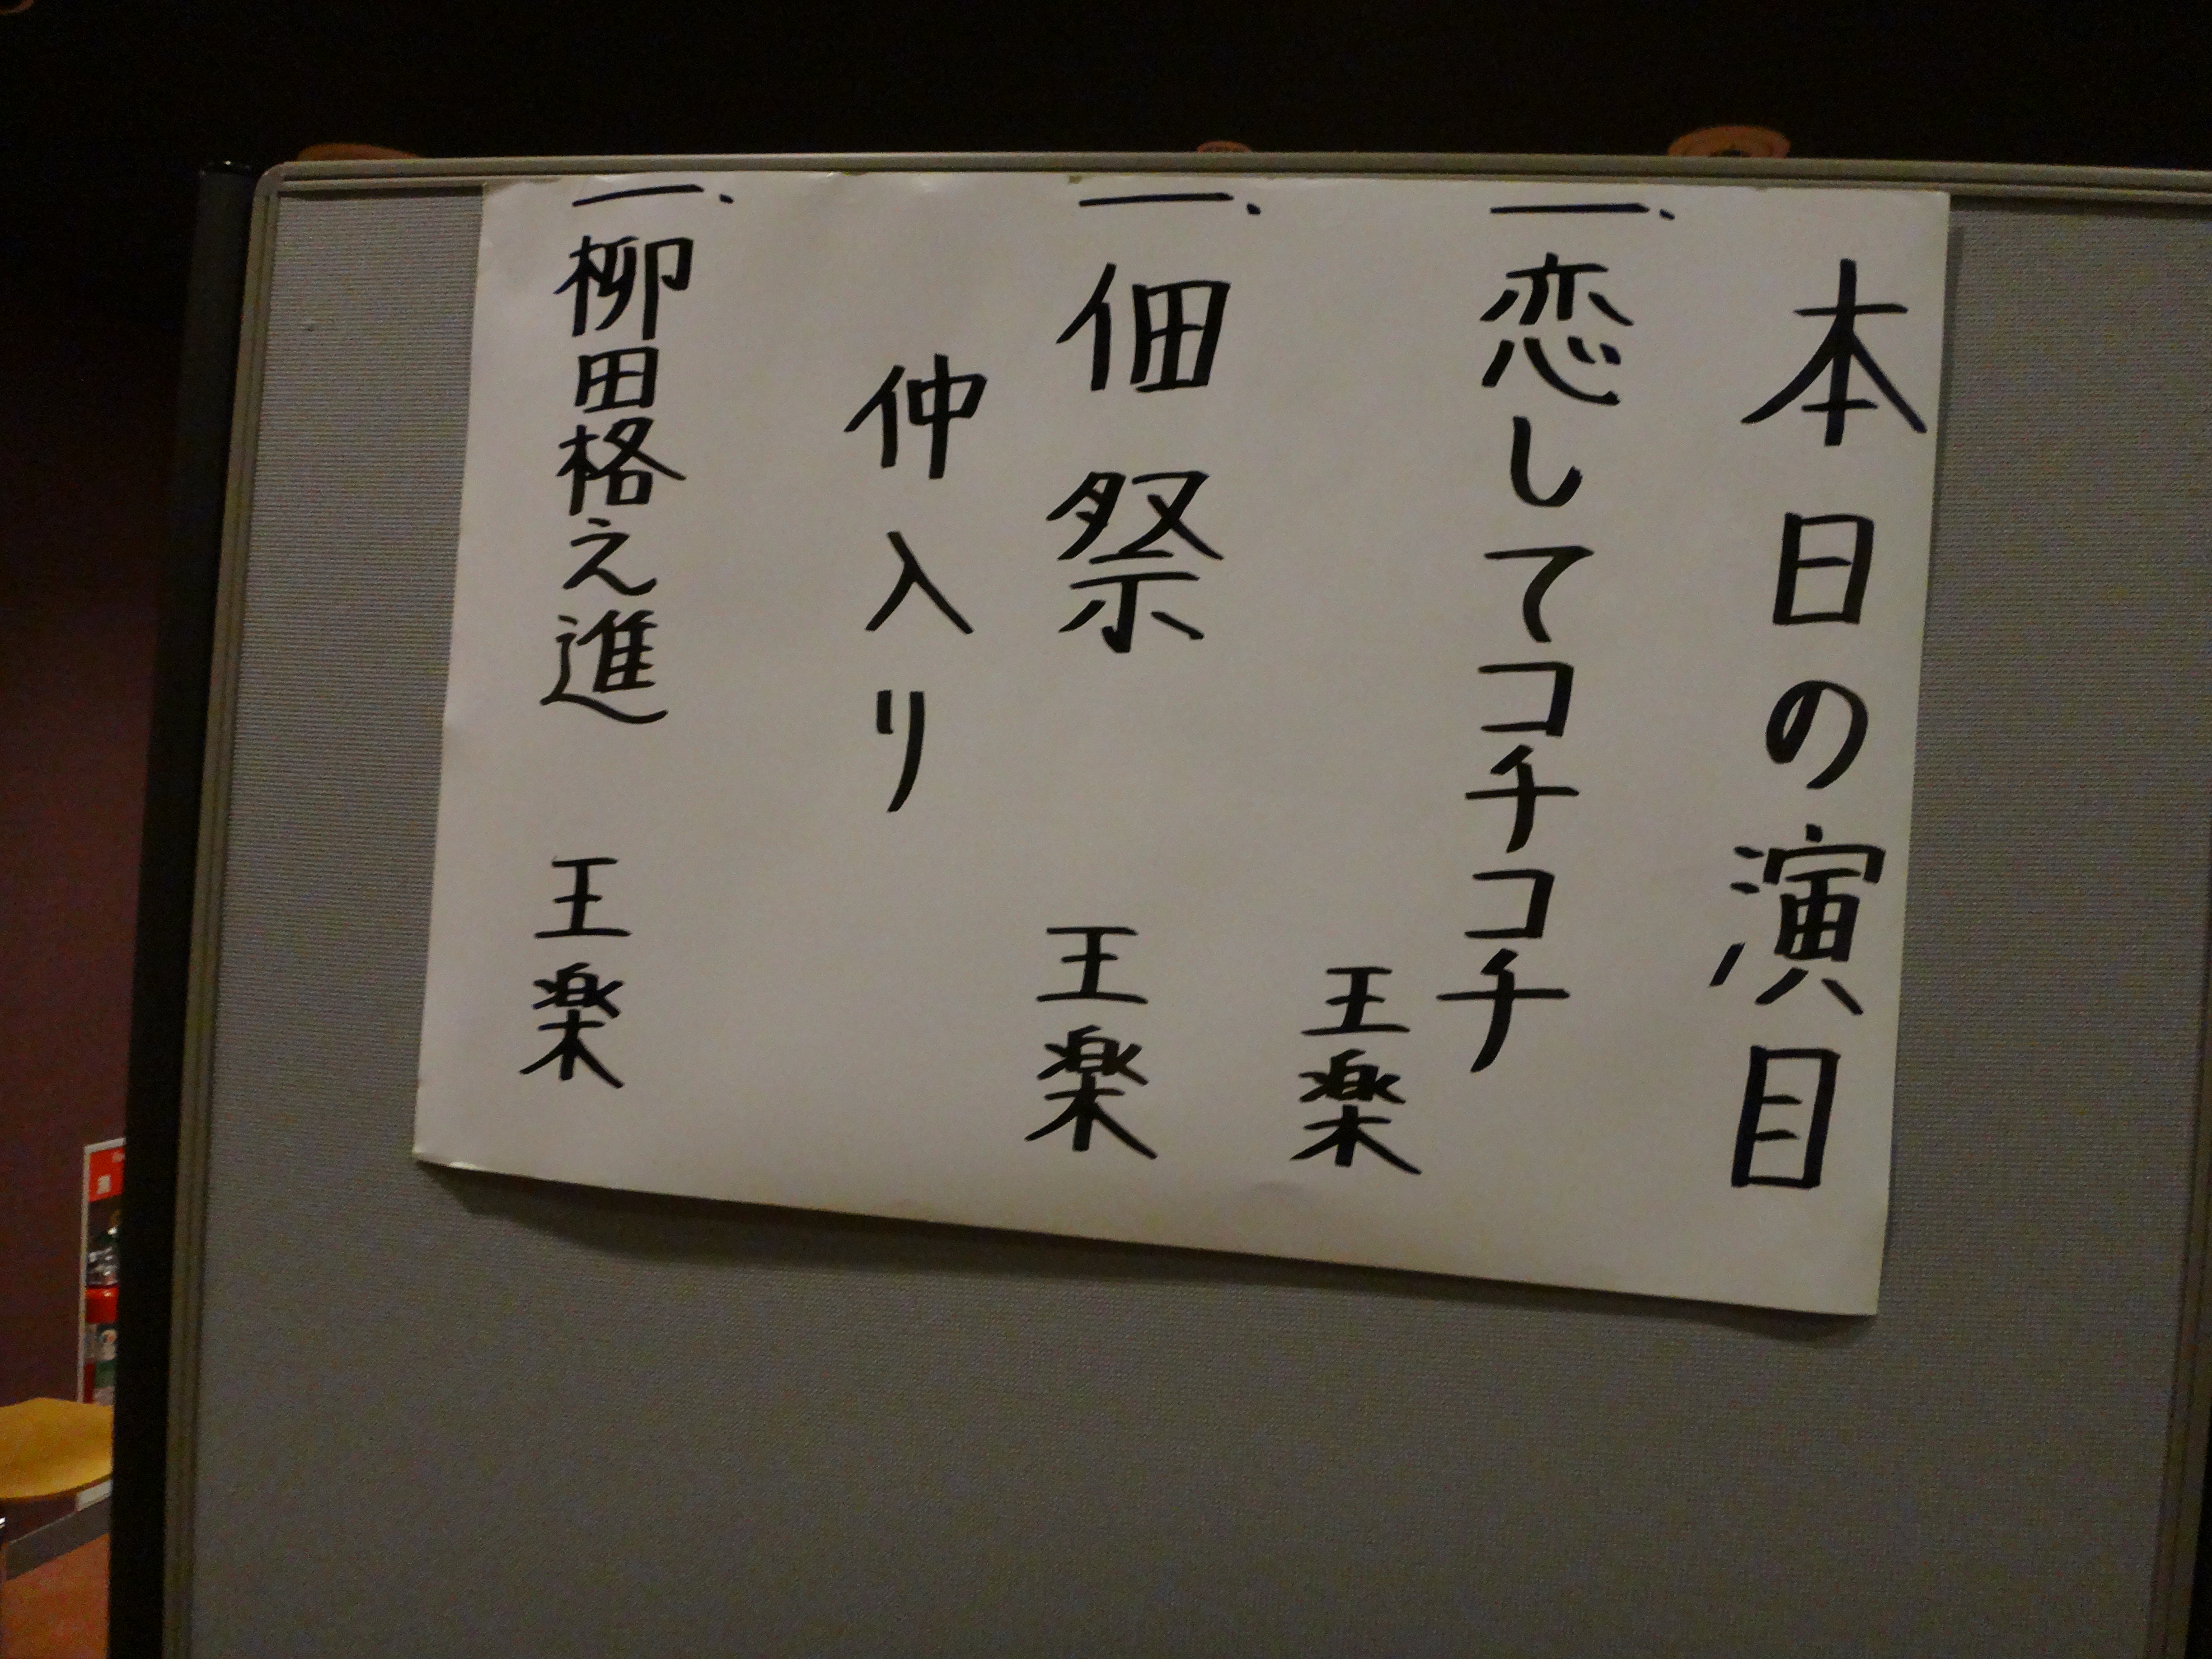 本日の演目
一、恋してコチコチ
王楽
一、佃祭 王楽
仲入り
一、柳田格之進 王楽